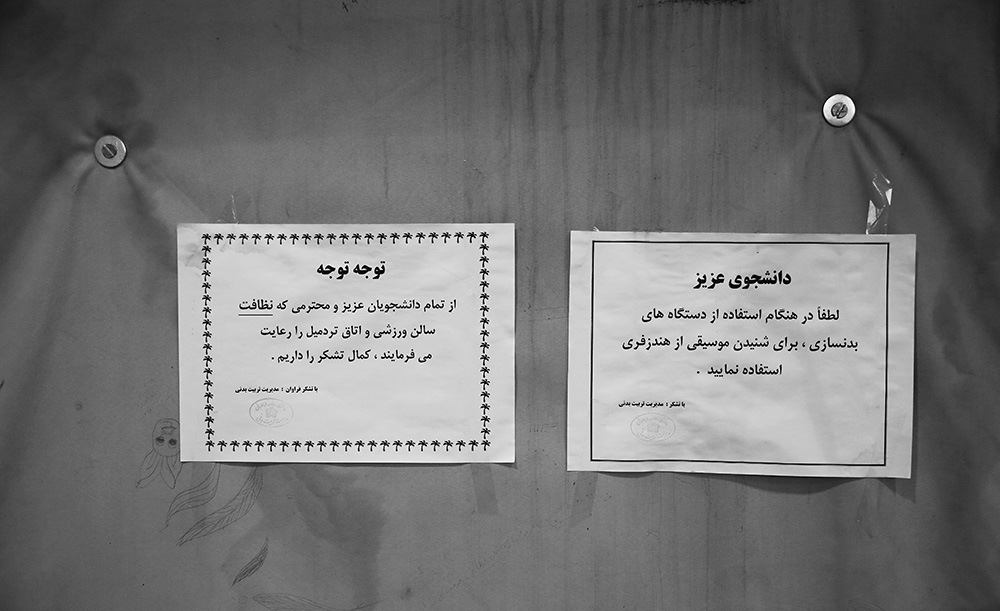 توجه توجه
از تمام دانشجویان عزیز و محترمی که نظافت
سالن ورزشی و اتاق تردمیل را رعایت
می فرمایند ، کمال تشکر را داریم .
با تشکر فراوان : مدیریت تربیت بدنی
دانشجوی عزیز
لطفاً در هنگام استفاده از دستگاه های
بدنسازی ، برای شنیدن موسیقی از هندزفری
استفاده نمایید .
با تشکر : مدیریت تربیت بدنی